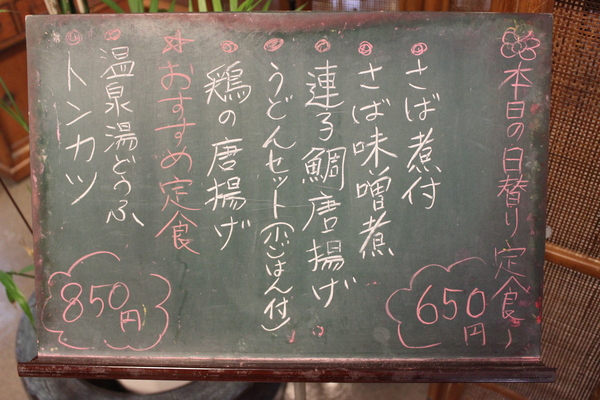 本日の日替り定食
さば煮付
さば味噌煮
連子鯛唐揚げ
うどんセット(小ごはん付)
鶏の唐揚げ
650円
おすすめ定食
温泉湯どうふ
トンカツ
850円